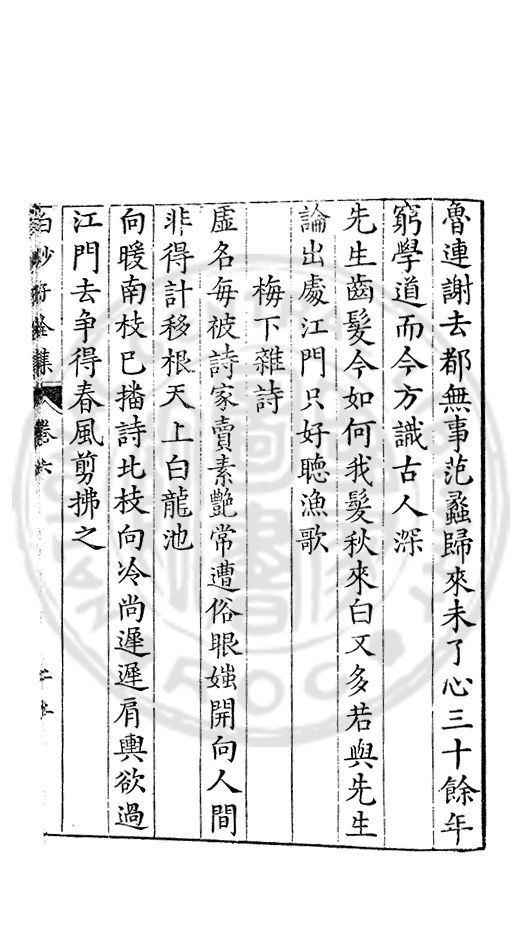 魯連謝去都無事范蠡歸來未了心三十餘年
窮學道而今方識古人深
先生齒髮今如何我髮秋來白又多若與先生
論出處江門只好聽漁歌
梅下雜詩
虛名每被詩家賣素艷常遭俗眼媸開向人間
非得計移根天上白龍池
向暖南枝已播詩北枝向冷尚遲遲肩輿欲過
江門去爭得春風剪拂之
白沙子全集 卷六